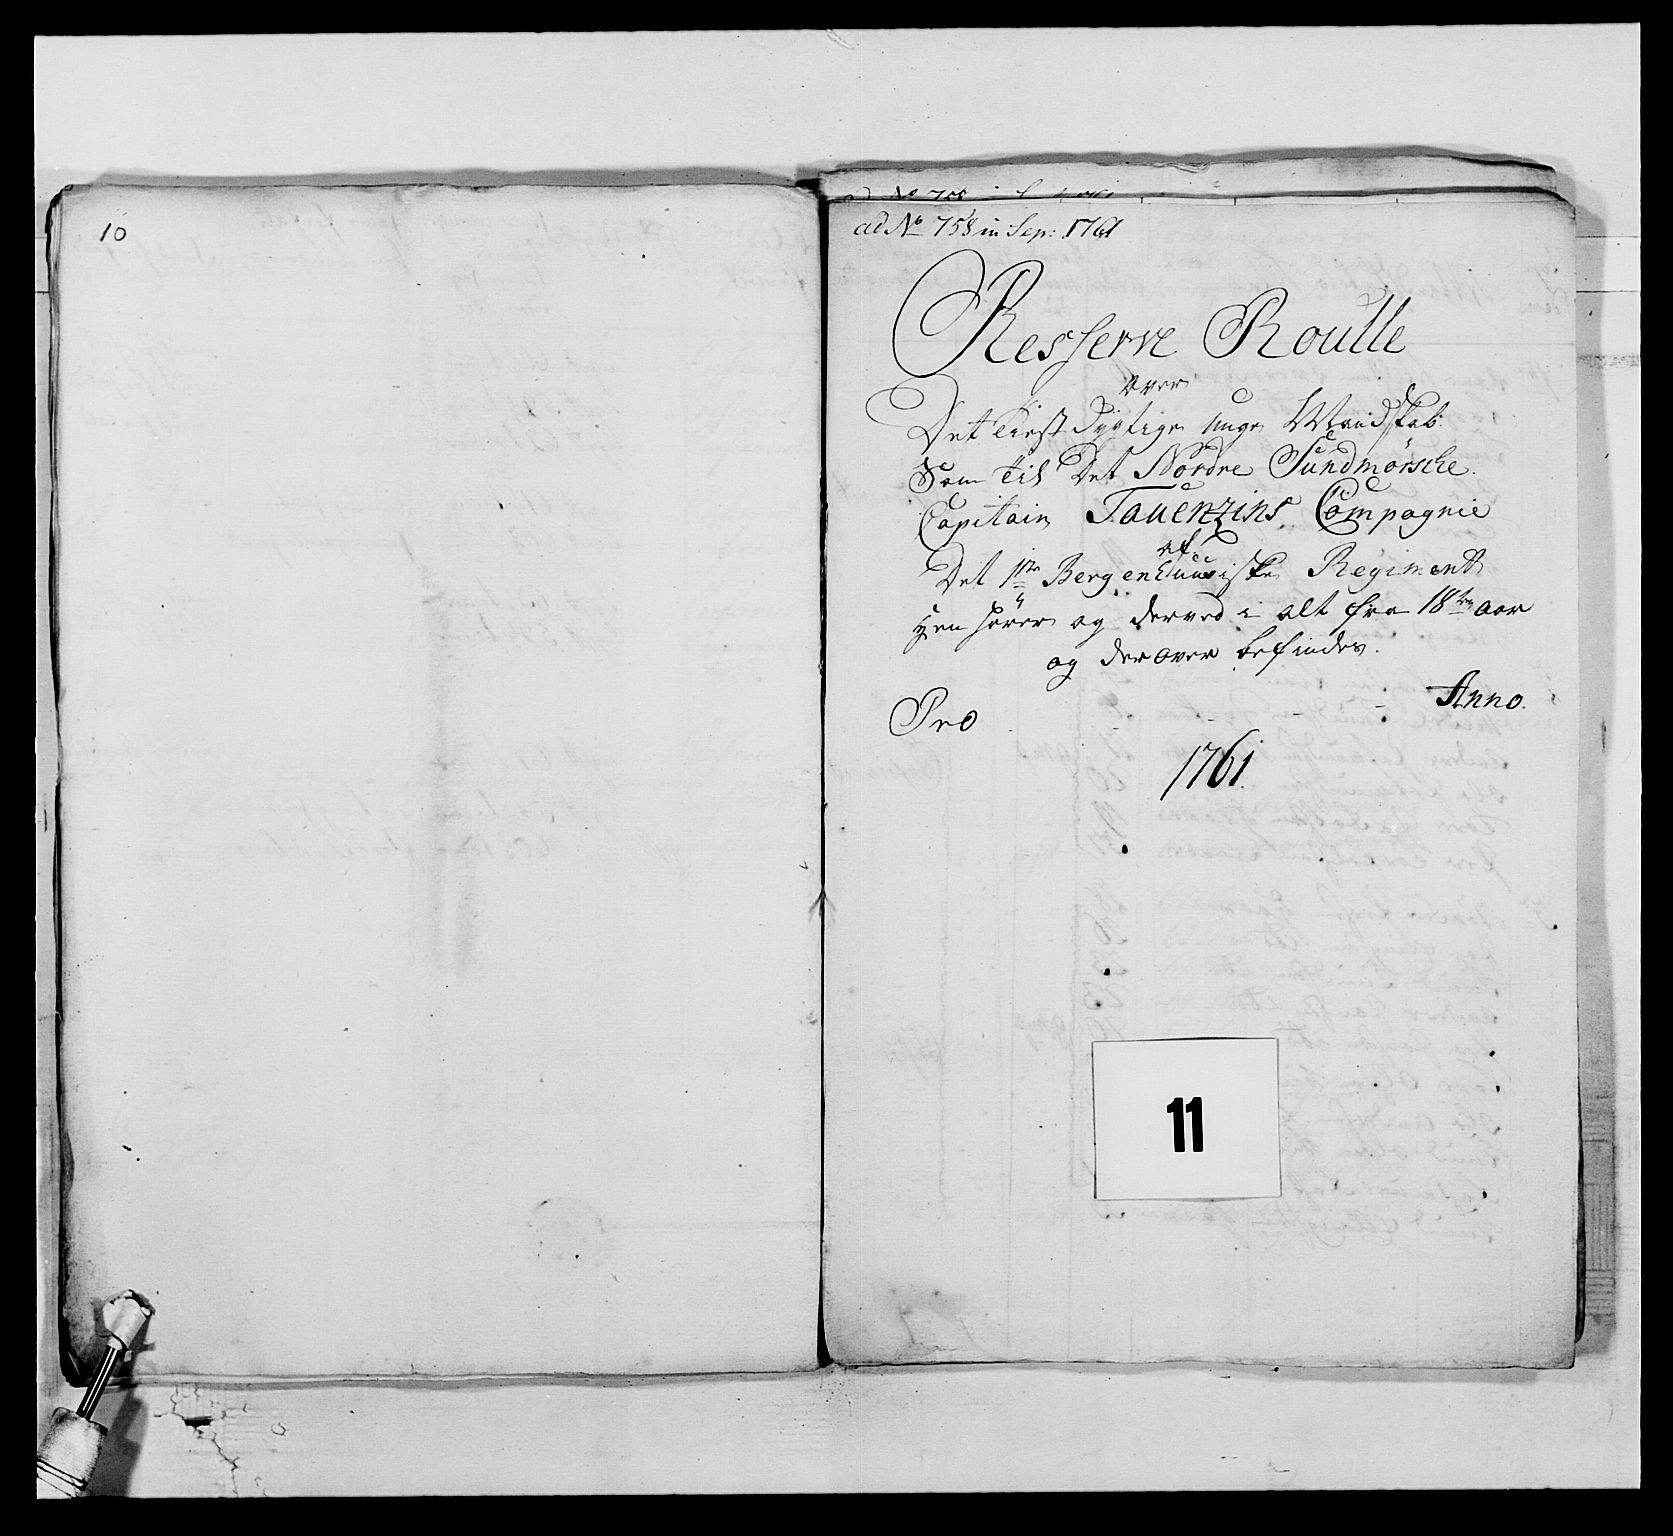 10
ad No 758 in Sep: 1761
Resserve Roulle
over
Det Tienst Dygtige unge Mandskab
Som til Det Nordre Sundmörsche
Capitain Tauenzins Compagnie
af
Det 1ste Bergenhuusiske Regiment
Hen hörer og derved i alt fra 18ten aar
og derover befindes.
Pro - - - Anno.
1761.
11